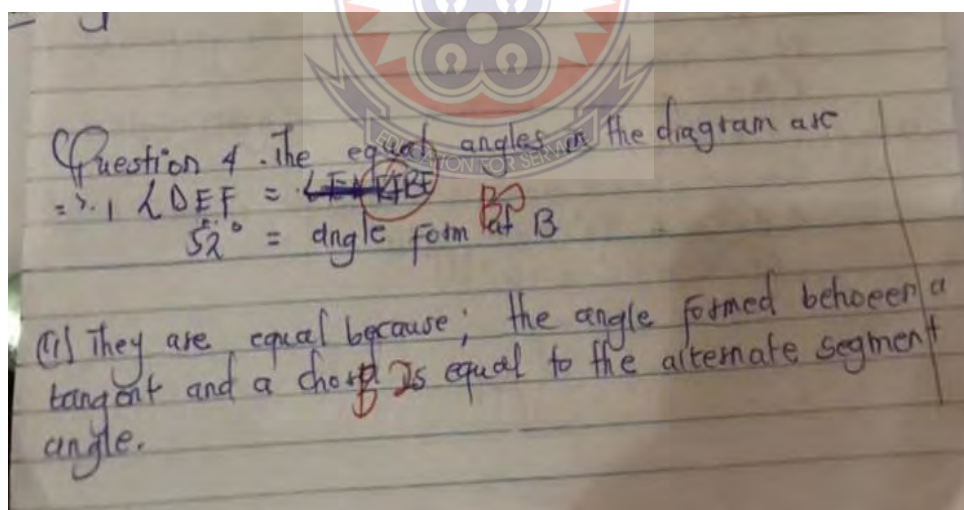 Question 4. The equal angles in the diagram are
∠DEF = FBE
52° = angle form at B
(ii) They are equal because; the angle formed between a
tangent and a chord Is equal to the alternate segment
angle.
EDUCATION FOR SERVICE